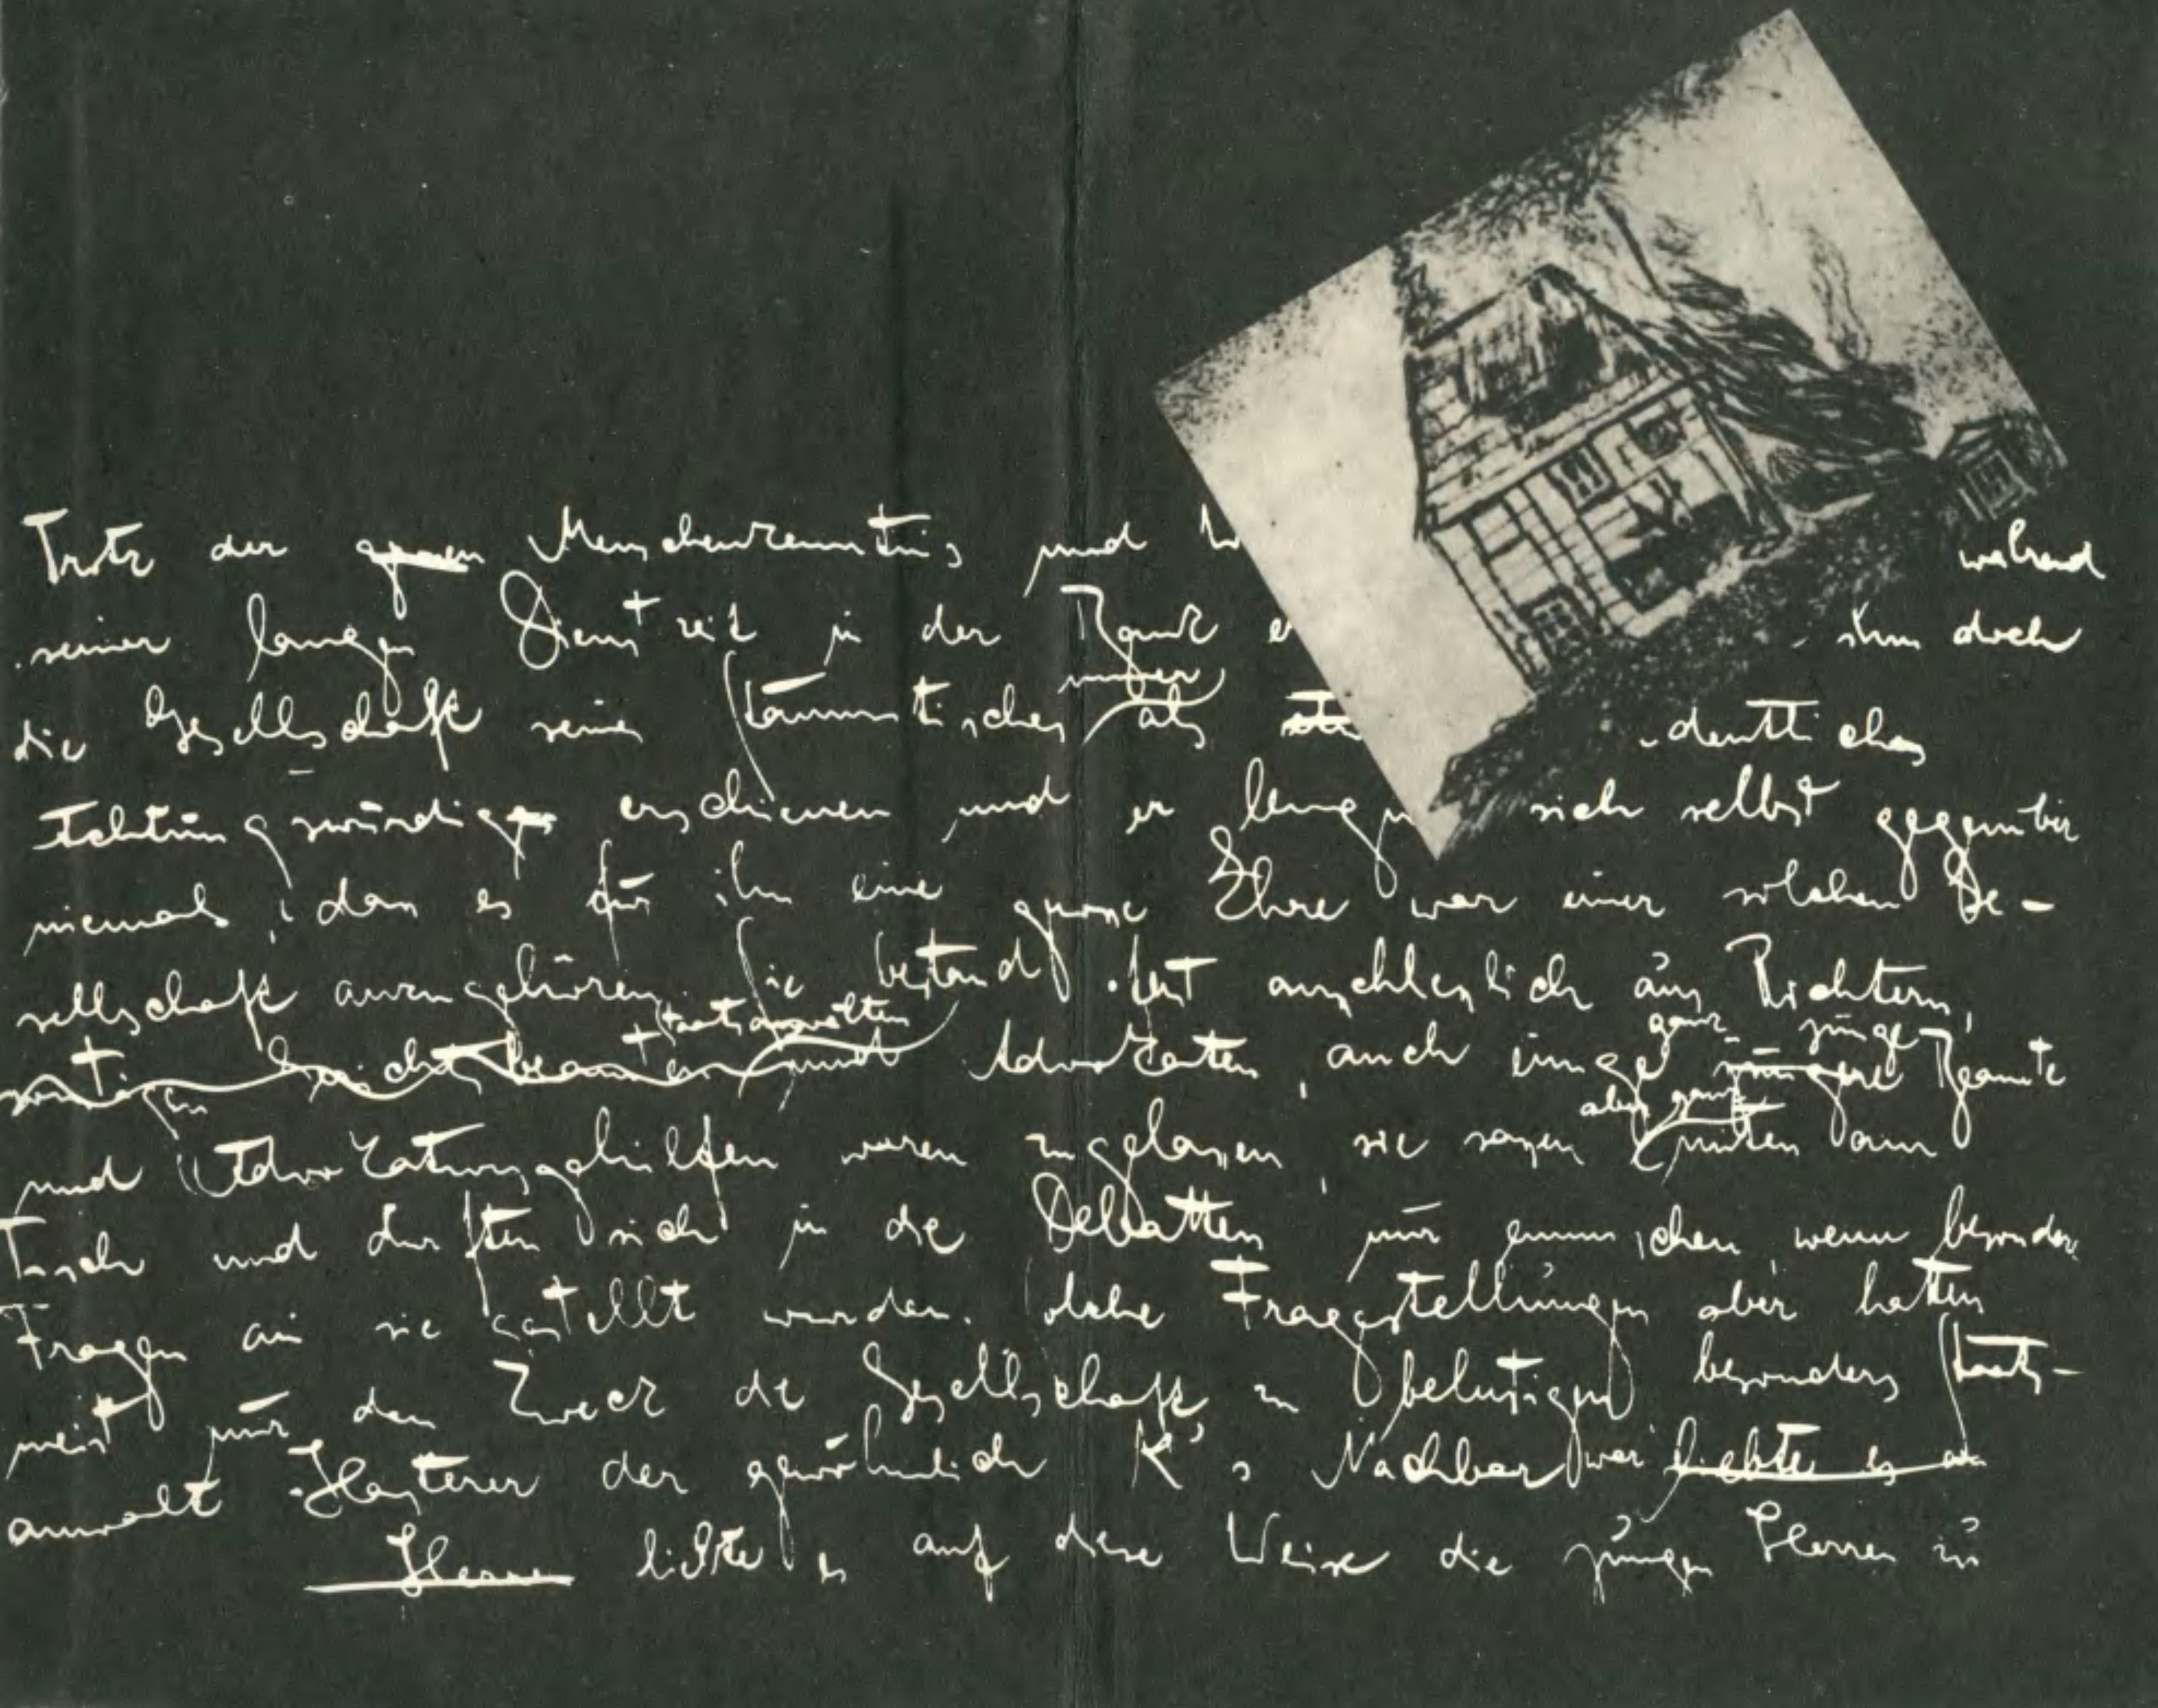 Trotz der großen Menschenkenntnis und W während
seiner langen Dienstzeit in der Bank er ihm doch
die Gesellschaft seines Stammtisches immer als deutliches
Achtungswürdiges erschienen und er leugn sich selbst gegenüber
niemals, dass es für ihn eine grosse Ehre war einer solchen Ge-
sellschaft anzugehören. Sie bestand fast ausschliesslich aus Richtern,
sonstigen Gerichtsbeamten Staatsanwälten und Advokaten, auch einige ganz junge jüngere Beamte
und Advokatursgehilfen waren zugelassen, sie sassen aber ganz unten am
Tisch und durften sich in die Debatten nur einmischen, wenn besondere
Fragen an sie gestellt wurden. Solche Fragestellungen aber hatten
meist nur den Zweck die Gesellschaft zu belustigen, besonders Staats-
anwalt Hasterer der gewöhnlich K's Nachbar war liebte es an
Herren liebte es auf diese Weise die jungen Herren zu